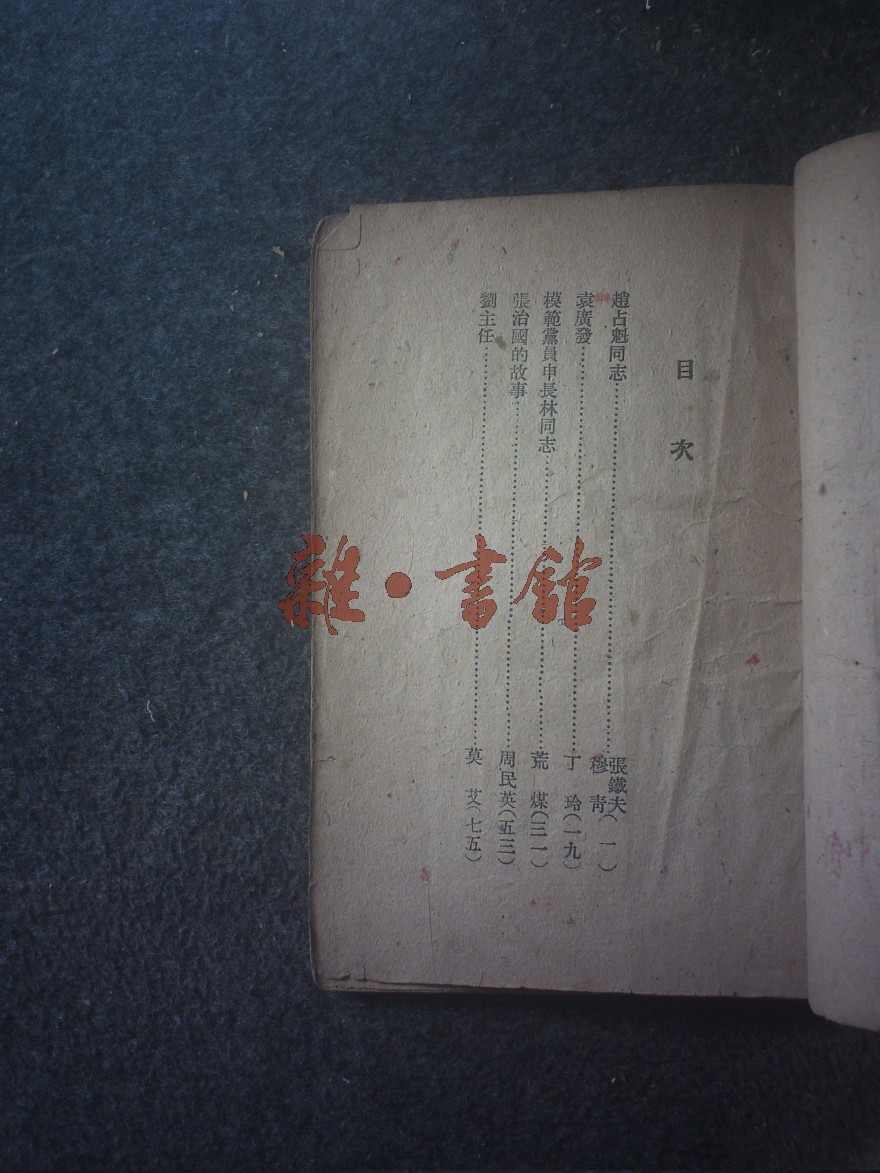 目次
趙占魁同志……張鐵夫 穆青(一)
袁廣發……丁玲(一九)
模範黨員申長林同志……荒煤(三一)
張治國的故事……周民英(五三)
劉主任……莫艾(七五)
雜·書館